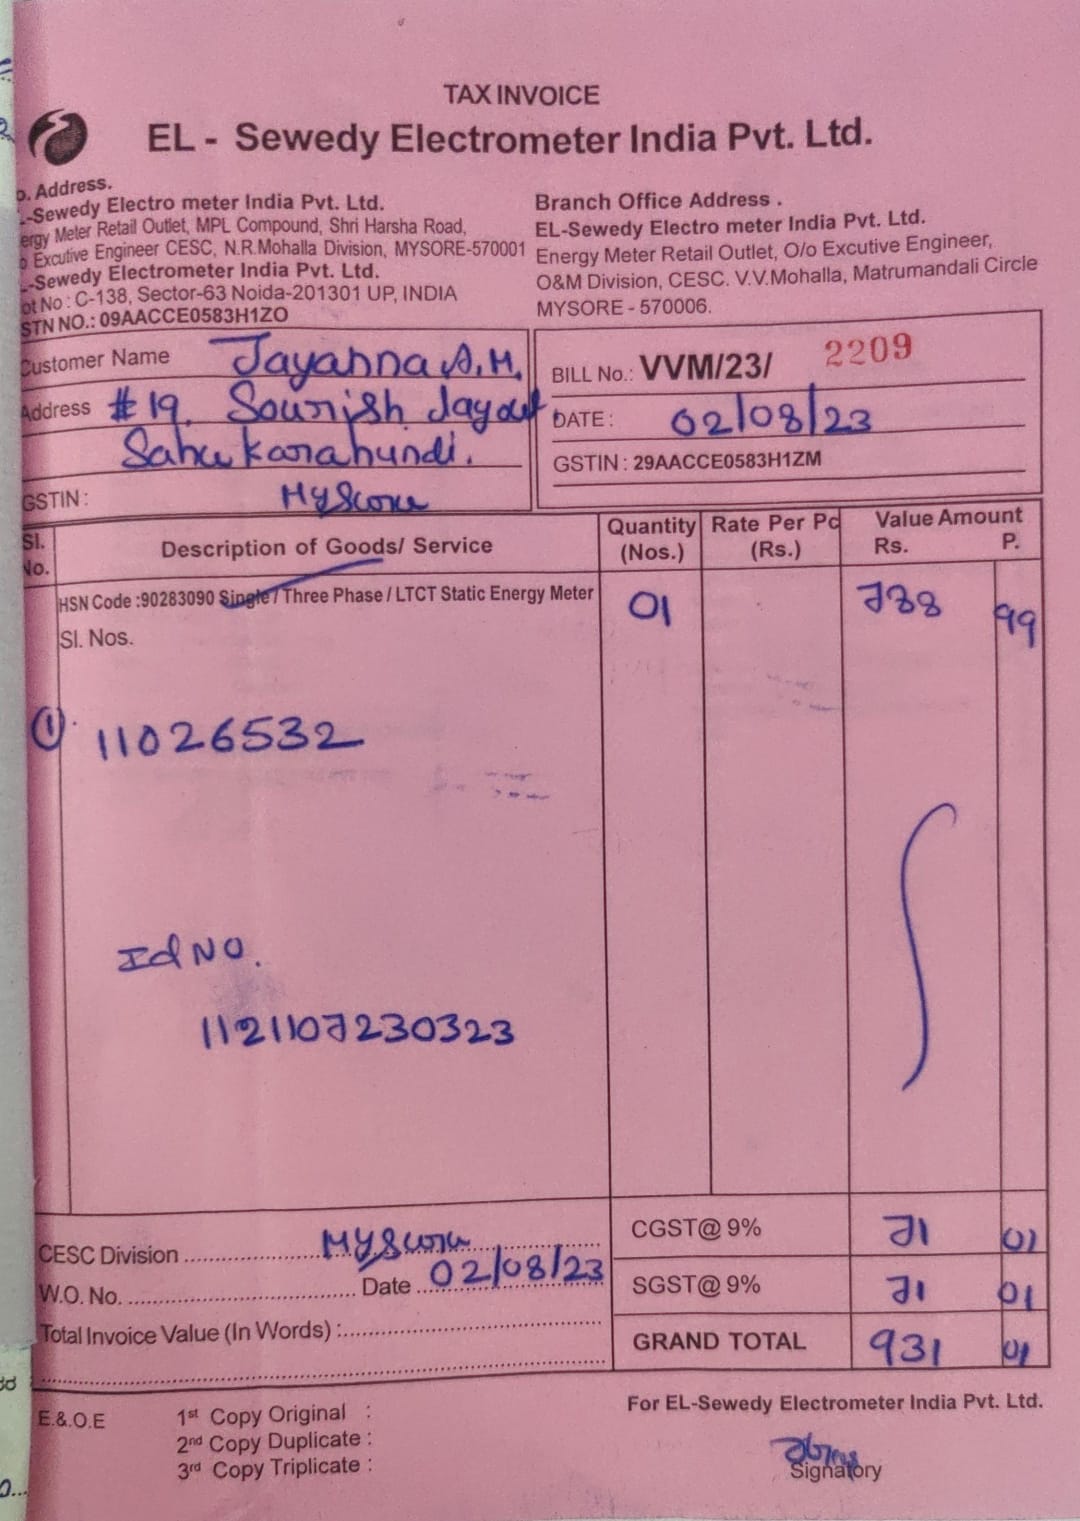 TAX INVOICE
EL - Sewedy Electrometer India Pvt. Ltd.
o. Address.
-Sewedy Electro meter India Pvt. Ltd.
ergy Meter Retail Outlet, MPL Compound, Shri Harsha Road,
o Excutive Engineer CESC, N.R.Mohalla Division, MYSORE-570001
-Sewedy Electrometer India Pvt. Ltd.
ot No : C-138, Sector-63 Noida-201301 UP, INDIA
STN NO.: 09AACCE0583H1ZO
Branch Office Address .
EL-Sewedy Electro meter India Pvt. Ltd.
Energy Meter Retail Outlet, O/o Excutive Engineer,
O&M Division, CESC. V.V.Mohalla, Matrumandali Circle
MYSORE - 570006.
Customer Name Jayanna A.M.
Address #19, Sourish Layout
Sahukarahundi.
GSTIN : Myscore
BILL No.: VVM/23/ 2209
DATE : 02/08/23
GSTIN : 29AACCE0583H1ZM
Sl. No. Description of Goods/ Service Quantity (Nos.) Rate Per Pc (Rs.) Value Amount Rs. P.
HSN Code :90283090 Single / Three Phase / LTCT Static Energy Meter 01 788 99
Sl. Nos.
① 11026532
Id NO.
1121107230323
CESC Division Myscore
W.O. No. Date 02/08/23
Total Invoice Value (In Words) :
CGST@ 9% 71 01
SGST@ 9% 71 01
GRAND TOTAL 931 01
E.&.O.E
1st Copy Original :
2nd Copy Duplicate :
3rd Copy Triplicate :
For EL-Sewedy Electrometer India Pvt. Ltd.
Signatory